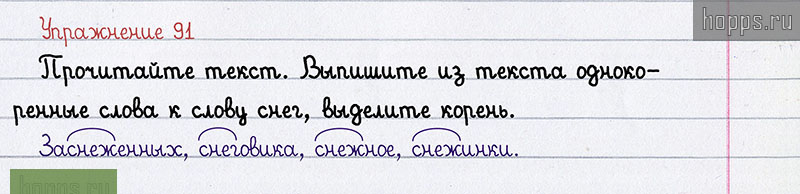 hopps.ru
Упражнение 91
Прочитайте текст. Выпишите из текста одноко-
ренные слова к слову снег, выделите корень.
Заснеженных, снеговика, снежное, снежинки.
hopps.ru